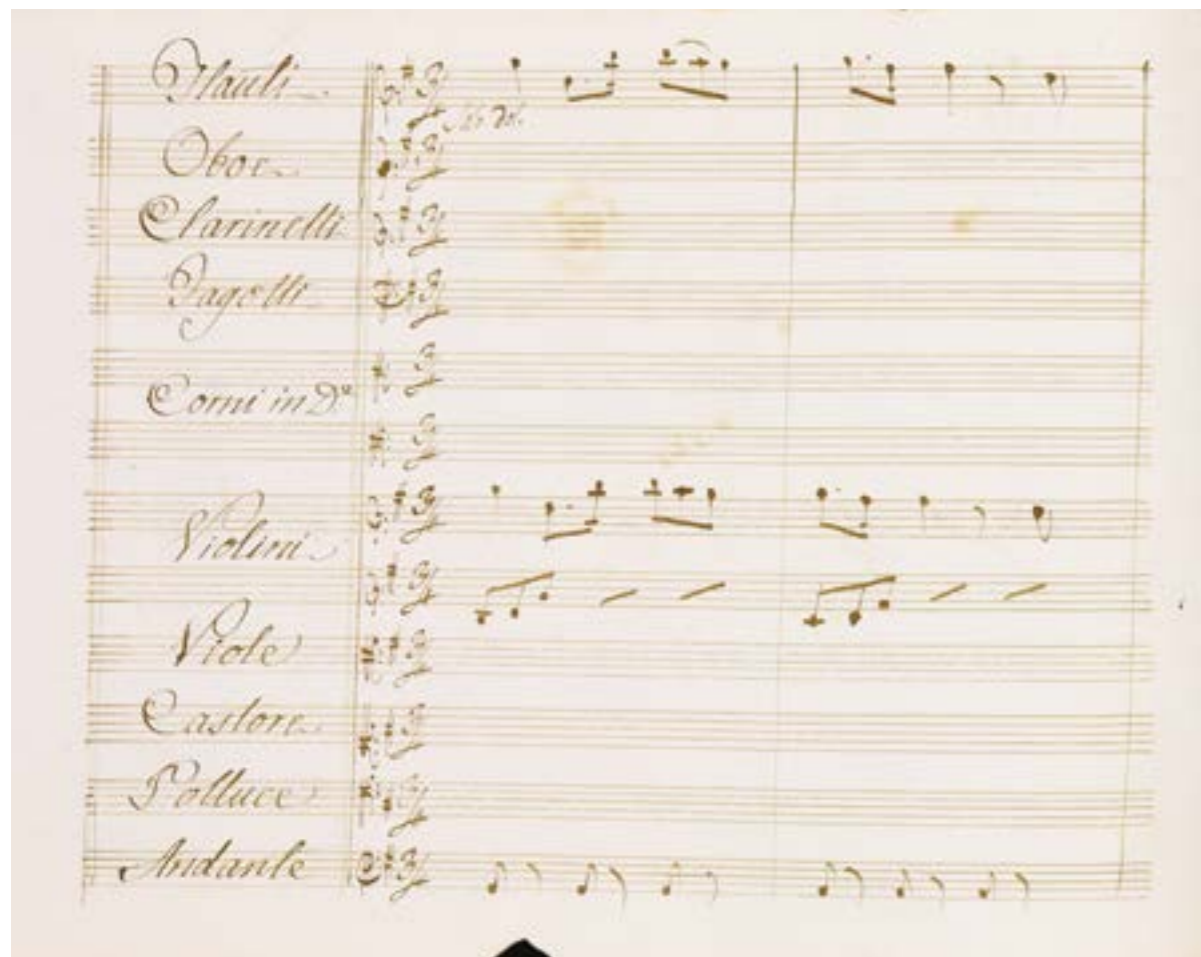 Flauti
Oboe
Clarinetti
Fagotti
Corni in D
Violini
Viole
Castore
Polluce
Andante